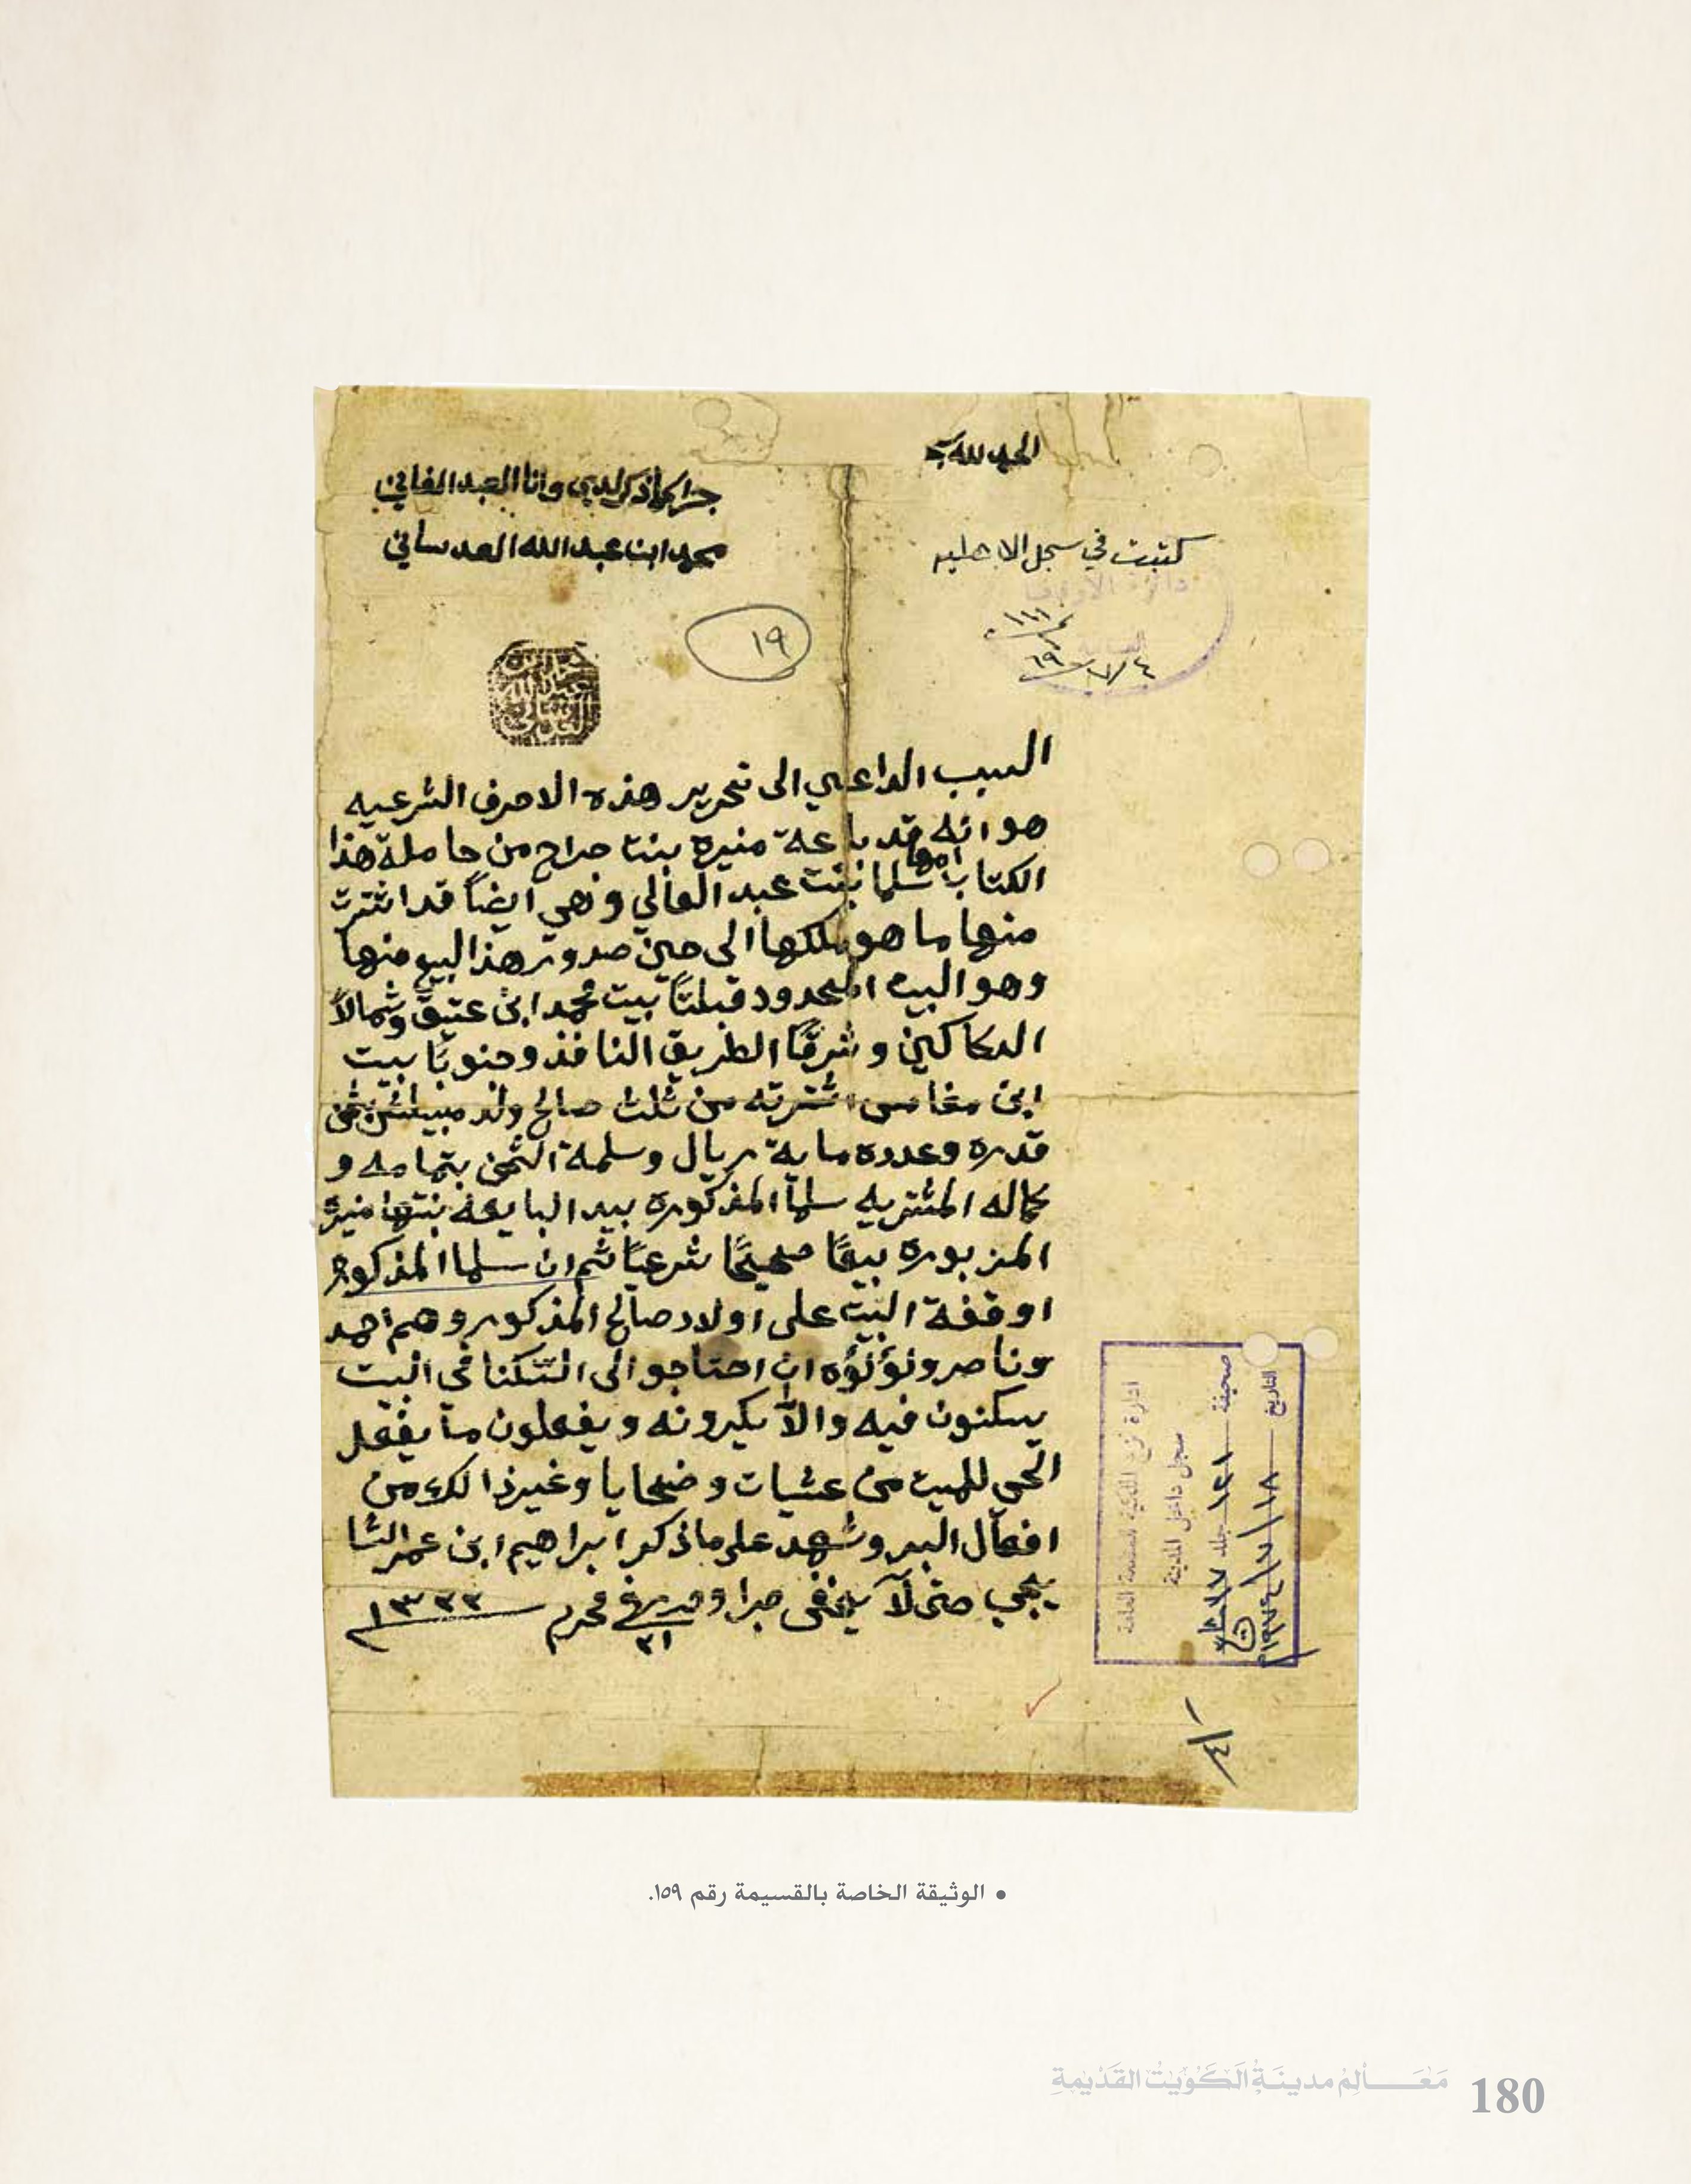 الحمد لله
جرا كما ذكر لدي وانا العبد الفاني
محمد ابن عبدالله العدساني
كتبت في سجل الاهليه
دائرة الأوقاف
١٩
السبب الداعي الى تحرير هذه الاحرف الشرعيه
هو انه قد باعة منيرة بنت جراح من حاملة هذا
الكتاب امها سلما بنت عبد العالي وهي ايضاً قد اشترت
منها ما هو ملكها الى حين صدور هذا البيع منها
وهو البيت المحدود قبلتاً بيت محمد ابن عتيق وشمالاً
الدكاكين وشرقًا الطريق النافذ وجنوبًا بيت
ابن مغامس اشترته من ثلث صالح ولد بثمن
قدره وعدده ماية ريال وسلمة الثمن بتمامه و
كماله المشتريه سلما المذكوره بيد البايعة بنتها منيرة
المزبوره بيعًا صحيحًا شرعيًا ثم ان سلما المذكوره
اوقفة البيت على اولاد صالح المذكور وهم احمد
وناصر ولؤلؤه ان احتاجو الى السكنا في البيت
يسكنون فيه والاّ يكرونه ويفعلون ما يفعل
الحي للميت من عشيات وضحايا وغير ذالك من
افعال البر وشهد على ما ذكر ابراهيم ابن عمر الشا
يجي حتى لا يخفى جرا وحرر في ٢١ محرم ١٣٣٣
ادارة نزع الملكية للمنفعة العامة
سجل داخل المدينة
صحيفة ١٢١ جلد
التاريخ ١٨/٧/١٩٧٤
١/٤
• الوثيقة الخاصة بالقسيمة رقم ١٥٩.
مَعَالِمُ مدينَةِ الكُوَيْت القَدْيمَةِ
180